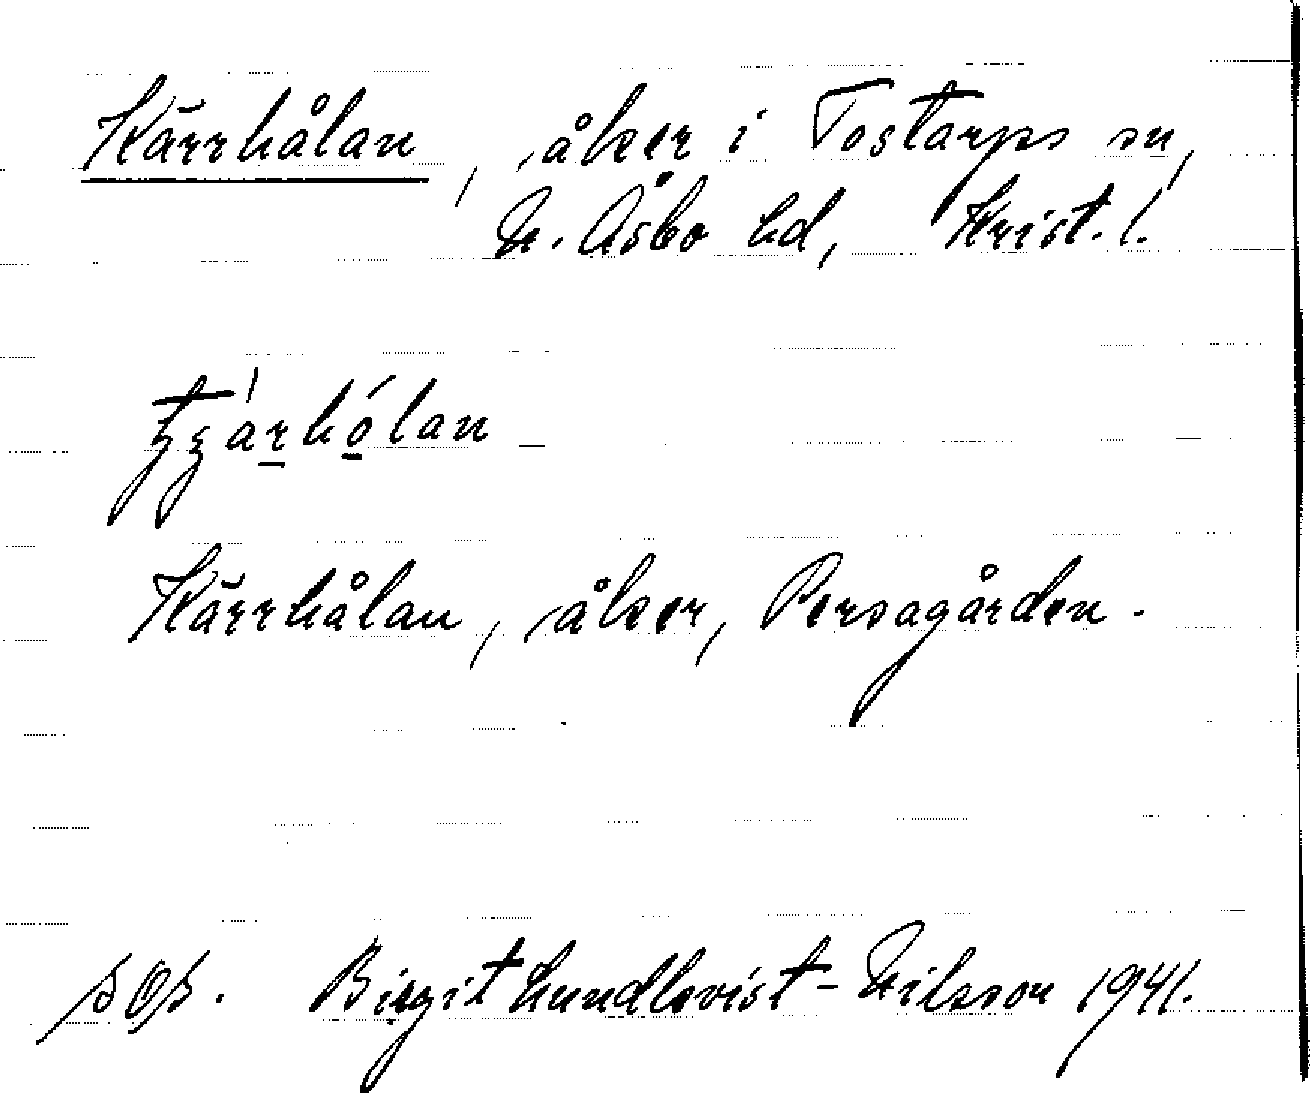 Kärrhålan, åker i Tostarps sn,
N. Åsbo hd, Krist. l.
Kärrhålan, åker, Persagården.
Birgit Lundkvist-Nilsson 1941.